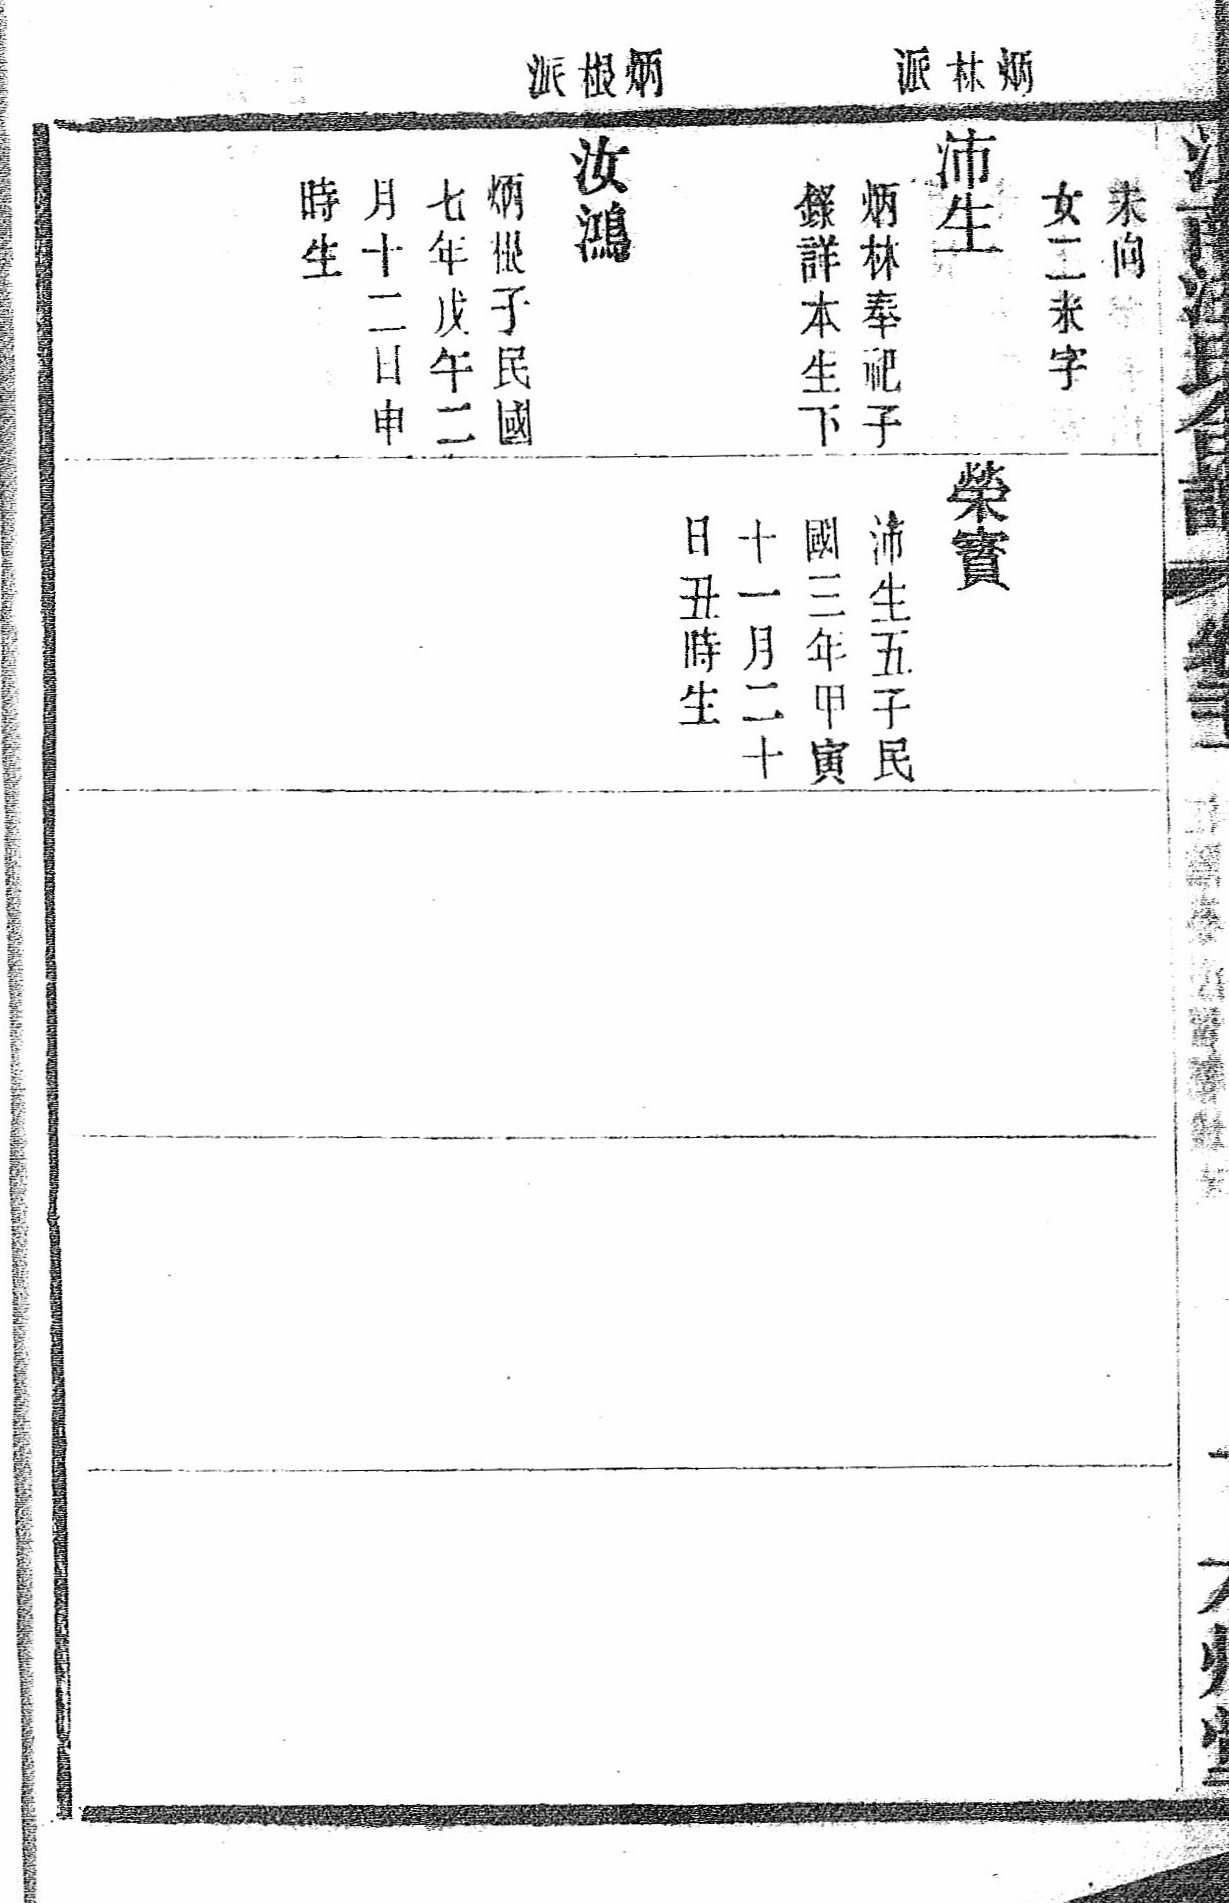 炳林派
炳根派
未向
女二未字
沛生
炳林奉祀子
錄詳本生下
汝鴻
炳根子民國
七年戊午二
月十二日申
時生
榮寶
沛生五子民
國三年甲寅
十一月二十
日丑時生